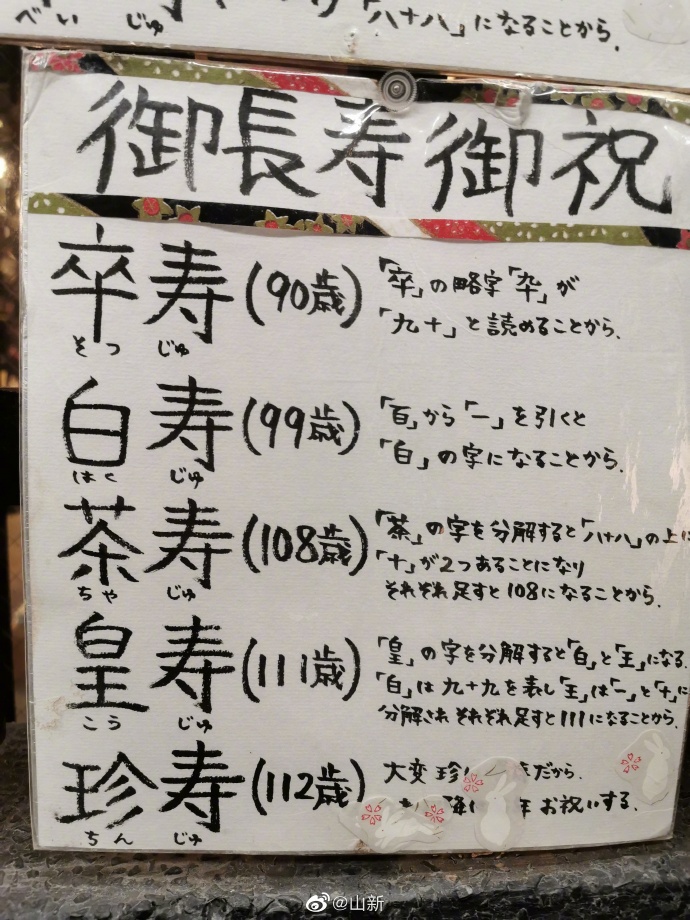 べい じゅ 「八十八」になることから.
御長寿御祝
卒寿(90歳)「卒」の略字「卆」が
そつ じゅ 「九十」と読めることから.
白寿(99歳)「百」から「一」を引くと
はく じゅ 「白」の字になることから.
茶寿(108歳)「茶」の字を分解すると「八十八」の上に
「十」が2つあることになり
ちゃ じゅ それぞれ足すと108になることから.
皇寿(111歳)「皇」の字を分解すると「白」と「王」になる.
「白」は九十九を表し「王」は「一」と「十」に
こう じゅ 分解され それぞれ足すと111になることから.
珍寿(112歳)大変珍し だから.
ちん じゅ 降 年お祝いする.
@山新